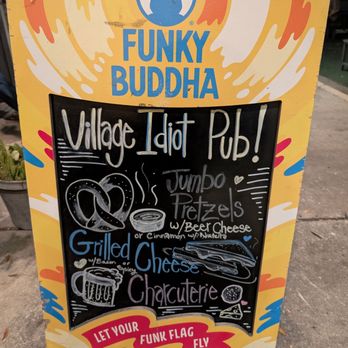 FUNKY
BUDDHA
Village Idiot Pub!
Jumbo
Pretzels
w/Beer Cheese
or Cinnamon w/
Grilled Cheese
w/Bacon or
Charcuterie
LET YOUR
FUNK FLAG
FLY